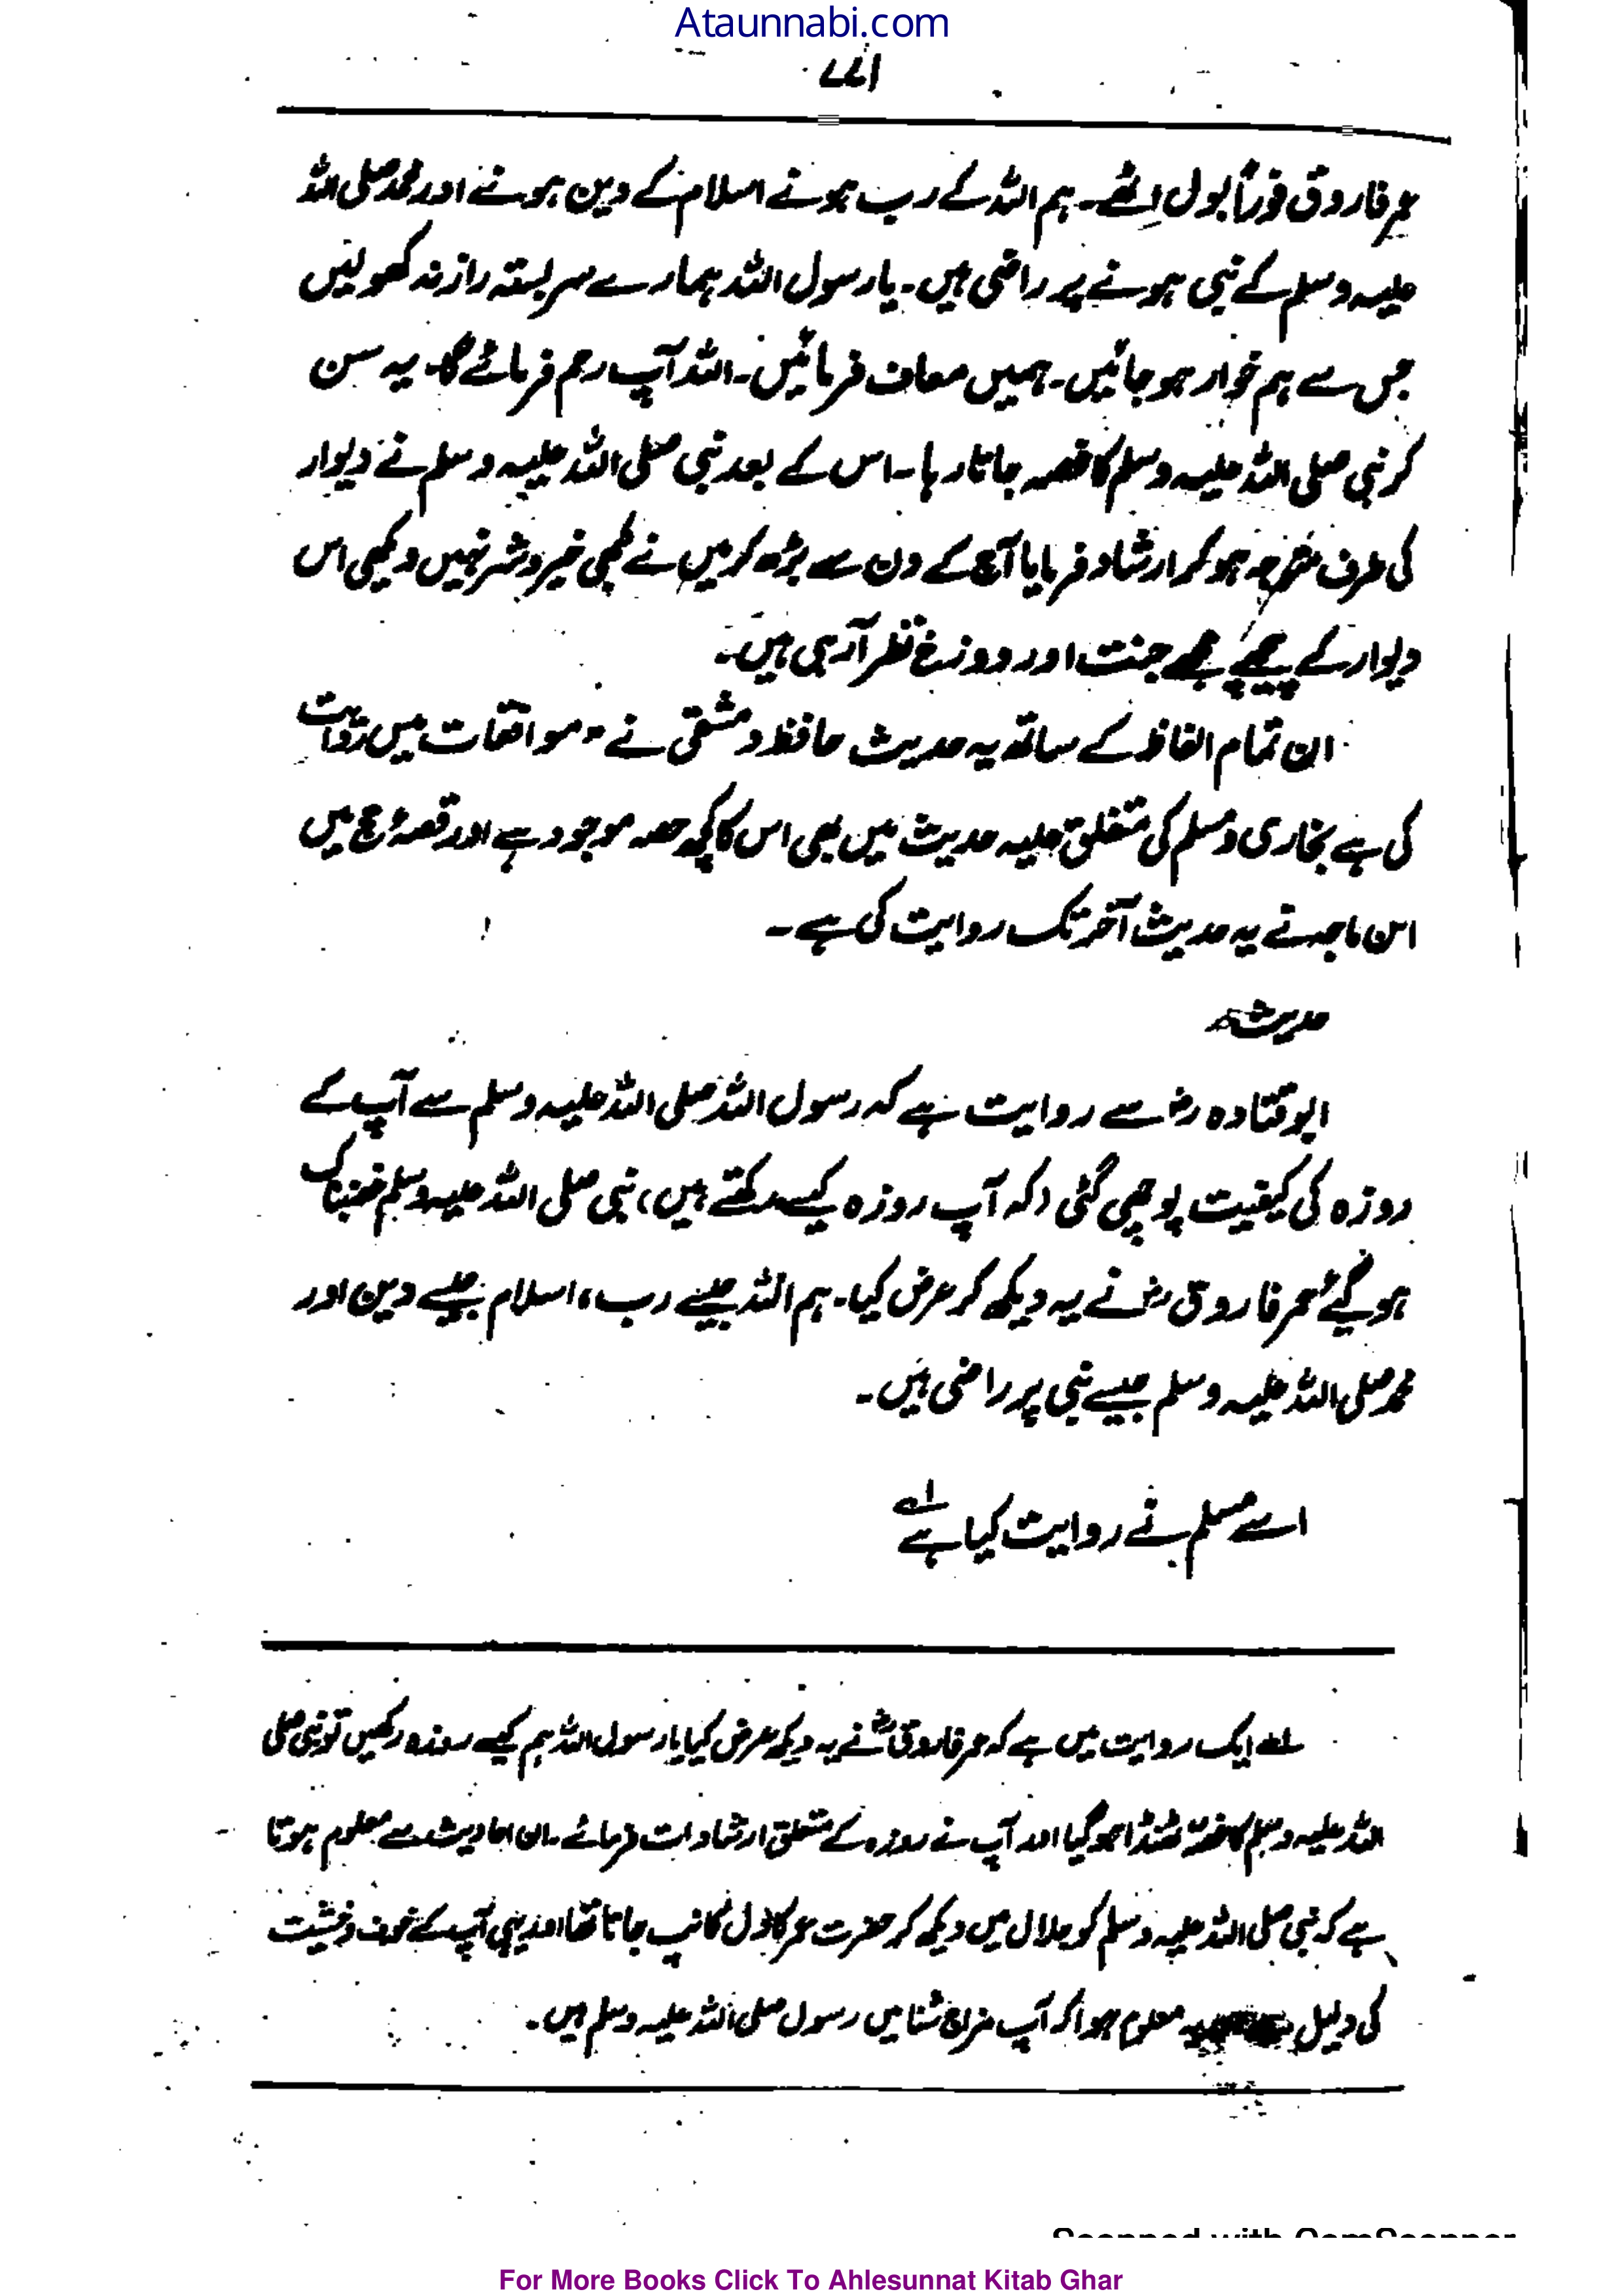 Ataunnabi.com
۷۷۱
عمر فاروق فوراً بول اٹھے۔ ہم اللہ کے رب ہونے اسلام کے دین ہونے اور محمد صلی اللہ
علیہ وسلم کے نبی ہونے پر راضی ہیں۔ یا رسول اللہ ہمارے سربستہ راز نہ کھولیں
جس سے ہم خوار ہو جائیں۔ ہمیں معاف فرمائیں۔ اللہ آپ رحم فرمائے گا۔ یہ سن
کر نبی صلی اللہ علیہ وسلم کا غصہ جاتا رہا۔ اس کے بعد نبی صلی اللہ علیہ وسلم نے دیوار
کی طرف متوجہ ہو کر ارشاد فرمایا آج کے دن سے بڑھ کر میں نے کبھی خیر و شر نہیں دیکھی اس
دیوار کے پیچھے مجھے جنت اور دوزخ نظر آرہی ہیں۔
ان تمام الفاظ کے ساتھ یہ حدیث حافظ دمشقی نے " موافقات میں روایت
کی ہے بخاری و مسلم کی متفق علیہ حدیث میں بھی اس کا کچھ حصہ موجود ہے اور قصۂ حج میں
ابن ماجہ نے یہ حدیث آخر تک روایت کی ہے۔
حدیث
ابو قتادہ رض سے روایت ہے کہ رسول اللہ صلی اللہ علیہ وسلم سے آپ کے
روزہ کی کیفیت پوچھی گئی (کہ آپ روزہ کیسے رکھتے ہیں) نبی صلی اللہ علیہ وسلم غضبناک
ہو گئے عمر فاروق رض نے یہ دیکھ کر عرض کیا۔ ہم اللہ جیسے رب، اسلام جیسے دین اور
محمد صلی اللہ علیہ وسلم جیسے نبی پر راضی ہیں۔
اسے مسلم نے روایت کیا ہے ۱ے
۱ے ایک روایت میں ہے کہ عمر فاروق رض نے یہ دیکھ عرض کیا یا رسول اللہ ہم کیسے روزہ رکھیں تو نبی صلی
اللہ علیہ وسلم کا غصہ ٹھنڈا ہو گیا اور آپ نے روزہ کے متعلق ارشادات فرمائے۔ ان احادیث سے معلوم ہوتا
ہے کہ نبی صلی اللہ علیہ وسلم کو جلال میں دیکھ کر حضرت عمر کا دل کانپ جاتا تھا اور یہی آپ کے خوف و خشیت
کی دلیل معلوم ہوا کہ آپ مزاج شناس رسول صلی اللہ علیہ وسلم ہیں۔
Scanned with CamScanner
For More Books Click To Ahlesunnat Kitab Ghar